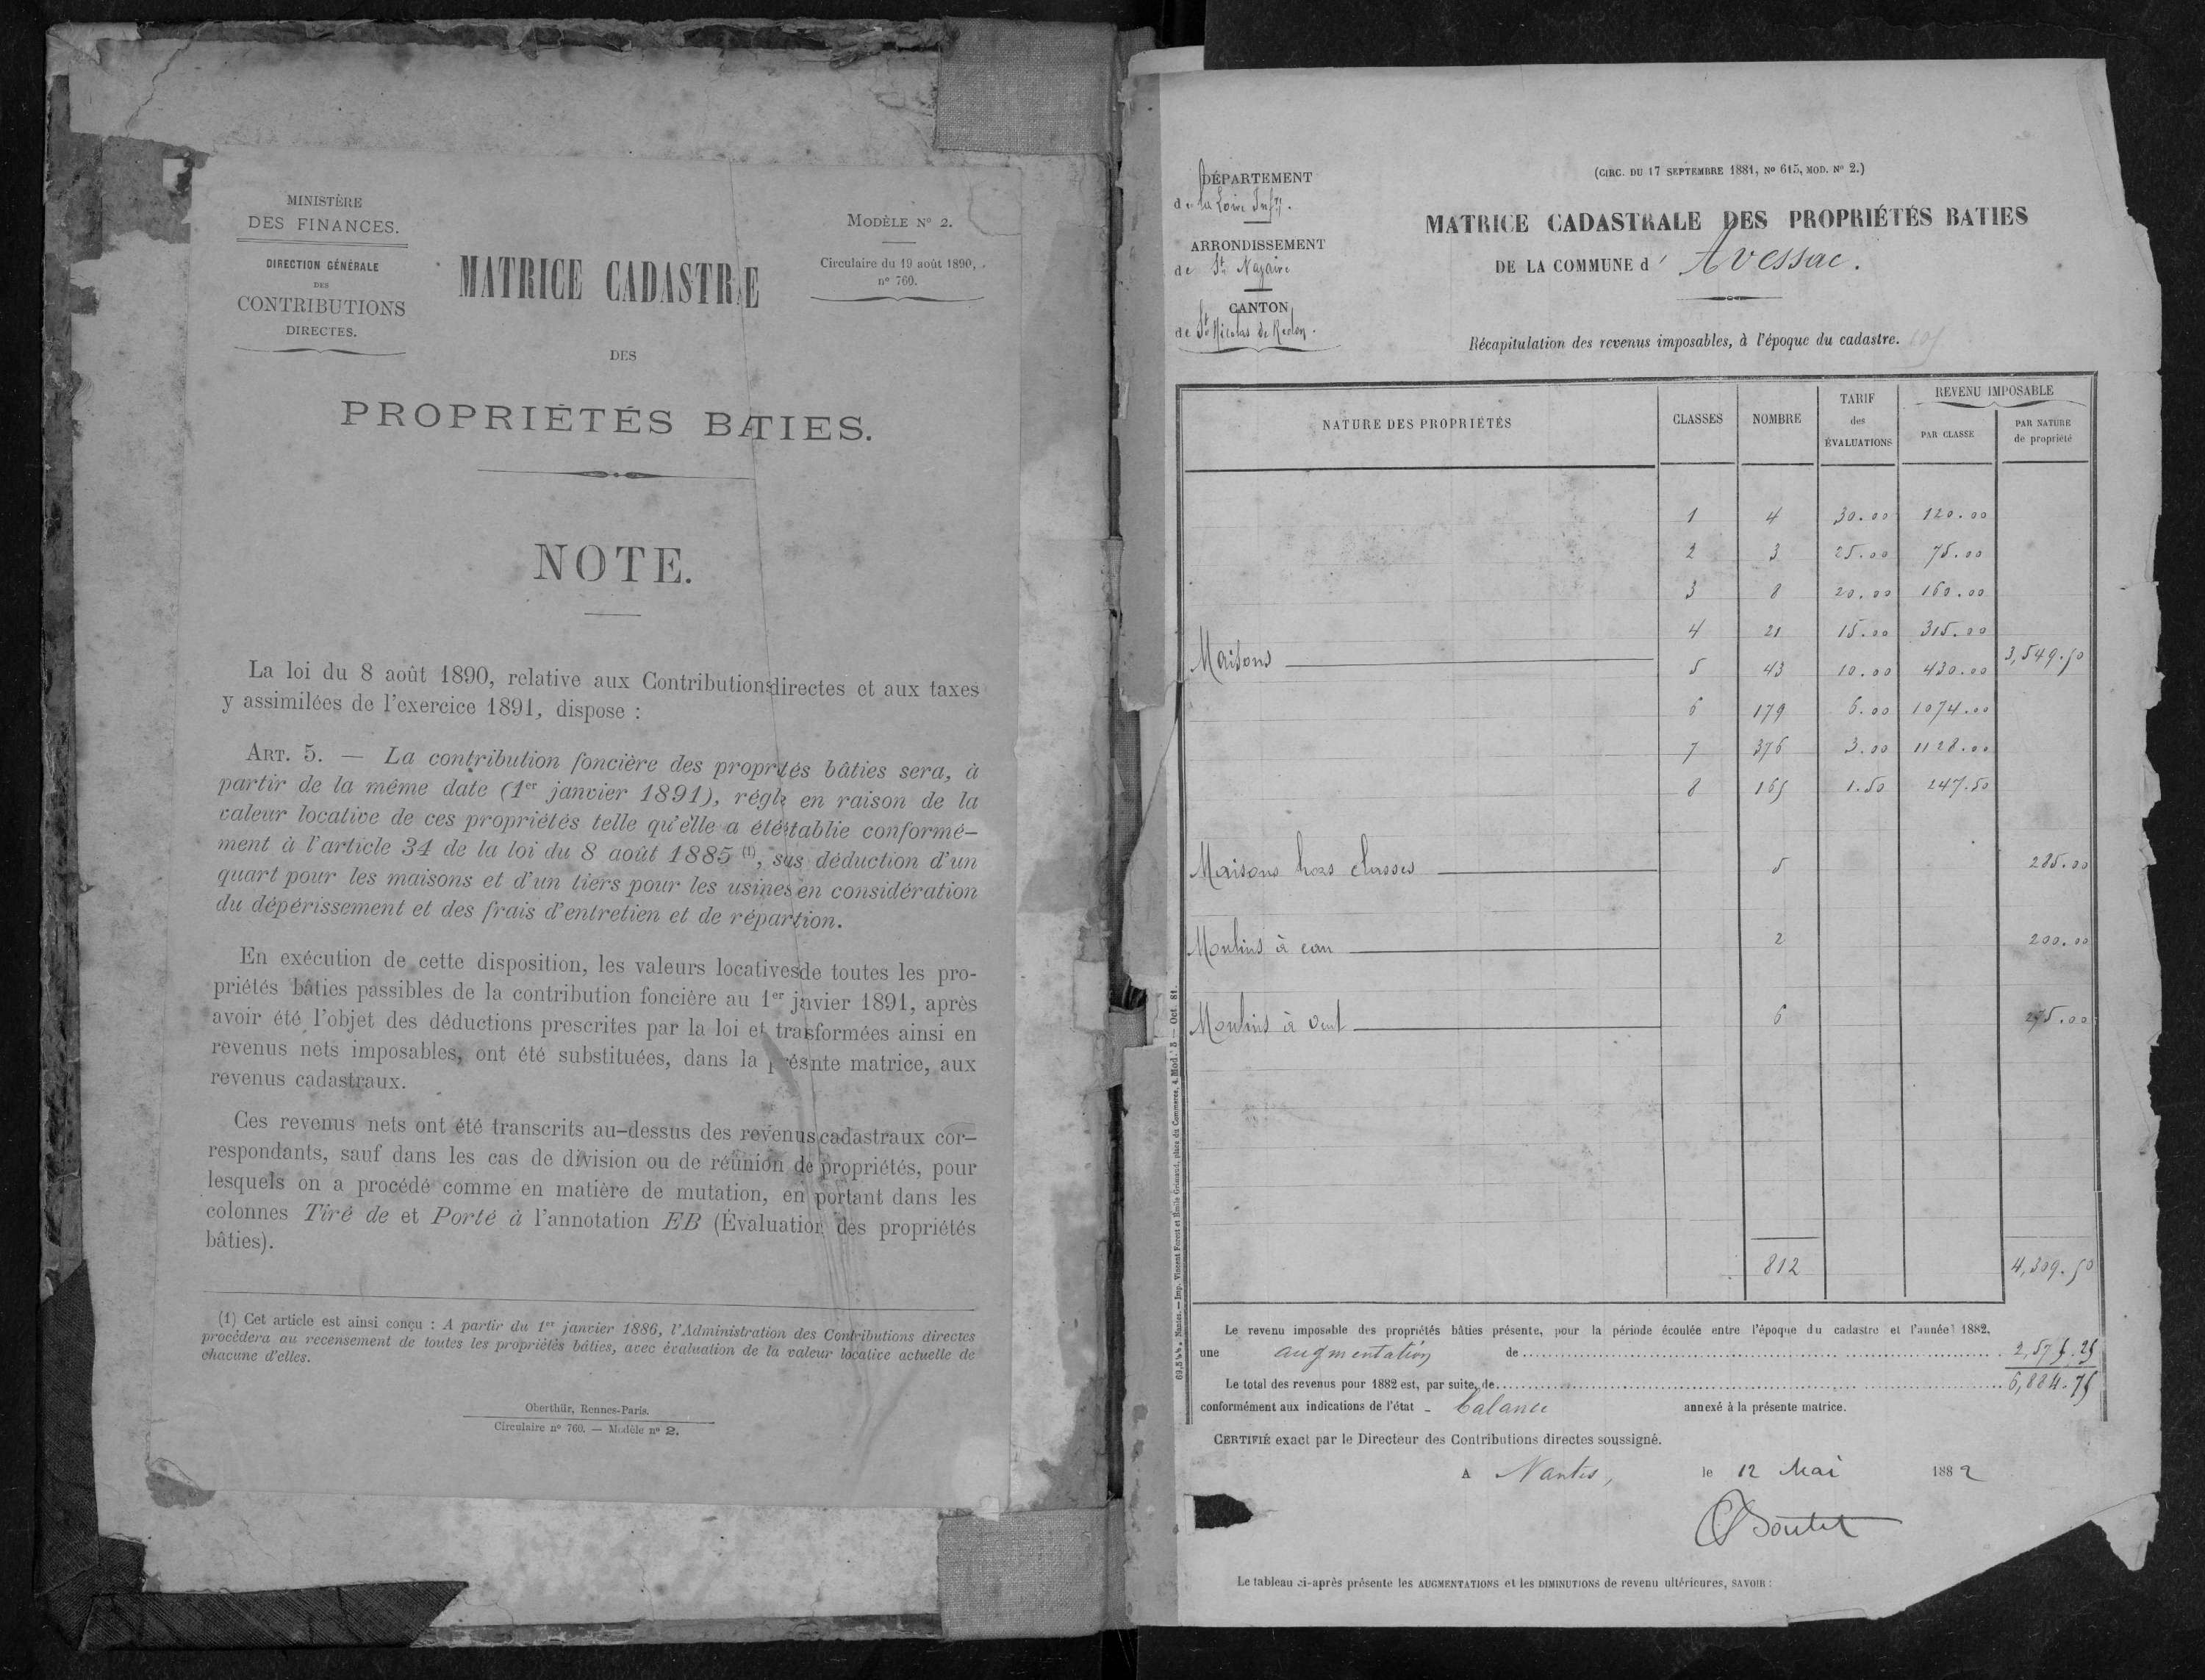 MINISTÈRE
DES FINANCES.
DIRECTION GÉNÉRALE
DES
CONTRIBUTIONS
DIRECTES.
MODÈLE N° 2.
Circulaire du 19 août 1890,
n° 760.
MATRICE CADASTRE
DES
PROPRIÉTÉS BATIES.
NOTE.
La loi du 8 août 1890, relative aux Contributions directes et aux taxes
y assimilées de l'exercice 1891, dispose :
ART. 5. — La contribution foncière des proprtés bâties sera, à
partir de la même date (1er janvier 1891), réglé en raison de la
valeur locative de ces propriétés telle qu'elle a été établie conformé-
ment à l'article 34 de la loi du 8 août 1885 (1), sus déduction d'un
quart pour les maisons et d'un tiers pour les usines en considération
du dépérissement et des frais d'entretien et de répartion.
En exécution de cette disposition, les valeurs locatives de toutes les pro-
priétés bâties passibles de la contribution foncière au 1er javier 1891, après
avoir été l'objet des déductions prescrites par la loi et trasformées ainsi en
revenus nets imposables, ont été substituées, dans la présnte matrice, aux
revenus cadastraux.
Ces revenus nets ont été transcrits au-dessus des revenus cadastraux cor-
respondants, sauf dans les cas de division ou de réunion de propriétés, pour
lesquels on a procédé comme en matière de mutation, en portant dans les
colonnes Tiré de et Porté à l'annotation EB (Évaluation des propriétés
bâties).
(1) Cet article est ainsi conçu : A partir du 1er janvier 1886, l'Administration des Contributions directes
procédera au recensement de toutes les propriétés bâties, avec évaluation de la valeur locative actuelle de
chacune d'elles.
Oberthür, Rennes-Paris.
Circulaire n° 760. — Modèle n° 2.
DÉPARTEMENT
de la Loire Infre.
ARRONDISSEMENT
de St Nazaire
CANTON
de St Nicolas de Redon.
(CIRC. DU 17 SEPTEMBRE 1881, N° 615, MOD. N° 2.)
MATRICE CADASTRALE DES PROPRIÉTÉS BATIES
DE LA COMMUNE d' Avessac.
Récapitulation des revenus imposables, à l'époque du cadastre.
NATURE DES PROPRIÉTÉS CLASSES NOMBRE TARIF des ÉVALUATIONS REVENU IMPOSABLE PAR CLASSE PAR NATURE de propriété
1 4 30.00 120.00
2 3 25.00 75.00
3 8 20.00 160.00
4 21 15.00 315.00
Maisons 5 43 10.00 430.00 3,549.50
6 179 6.00 1074.00
7 376 3.00 1128.00
8 165 1.50 247.50
Maisons hors classes 5 285.00
Moulins à eau 2 200.00
Moulins à vent 6 275.00
812 4,309.50
Le revenu imposable des propriétés bâties présente, pour la période écoulée entre l'époque du cadastre et l'année 1882,
une augmentation de 2,575.25
Le total des revenus pour 1882 est, par suite, de 6,884.75
conformément aux indications de l'état - balance annexé à la présente matrice.
CERTIFIÉ exact par le Directeur des Contributions directes soussigné.
A Nantes, le 12 Mai 1882
Le tableau ci-après présente les AUGMENTATIONS et les DIMINUTIONS de revenu ultérieures, SAVOIR :